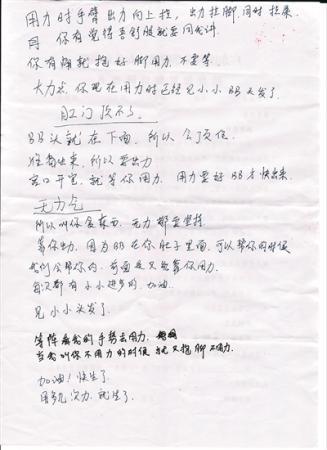 用力时手臂出力向上拉，出力拉脚，同时拉来
你有觉得唔舒服就要同我讲
你有痛就抱好脚用力，不要等
大力点，你现在用力时已经见小小BB头发了
肛门顶不了。
BB头就在下面，所以会顶住
出来，所以要出力
宫口开完，就等你用力，用力要好BB才快出来
无力气
所以叫你食东西，无力都要坚持
靠你出力，因为BB在你肚子里面，可以帮你的时候
我们会帮你的，前面是只能靠你用力
每次都有小小进步的，加油
见小小头发了
等阵看我的手势去用力
当我叫你不用力的时候 又抱脚不用力
加油！快生了
用多几次力，就生了